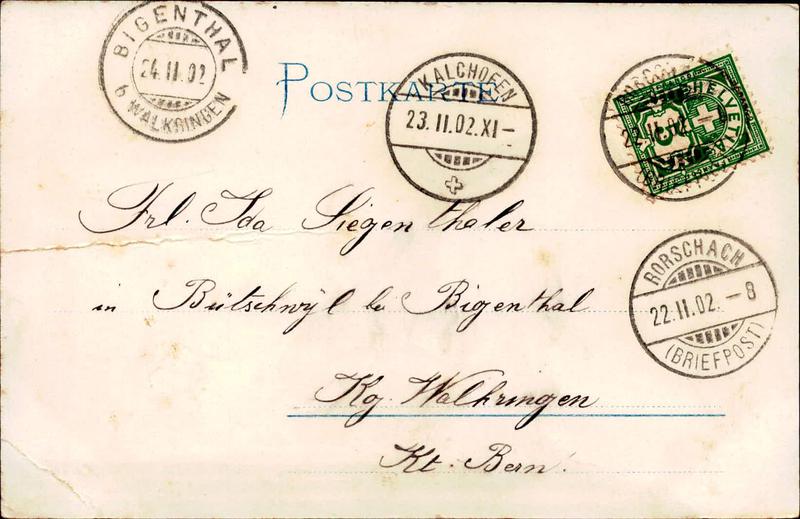 BIGENTHAL
24.II.02
b. WALKRINGEN
POSTKARTE
KALCHOFEN
23.II.02.XI-
HELVETIA
5
22.II.02.
RORSCHACH
22.II.02.-8
(BRIEFPOST)
Frl. Ida Siegenthaler
in Bütschwyl b/ Bigenthal
Kg. Walkringen
Kt. Bern.